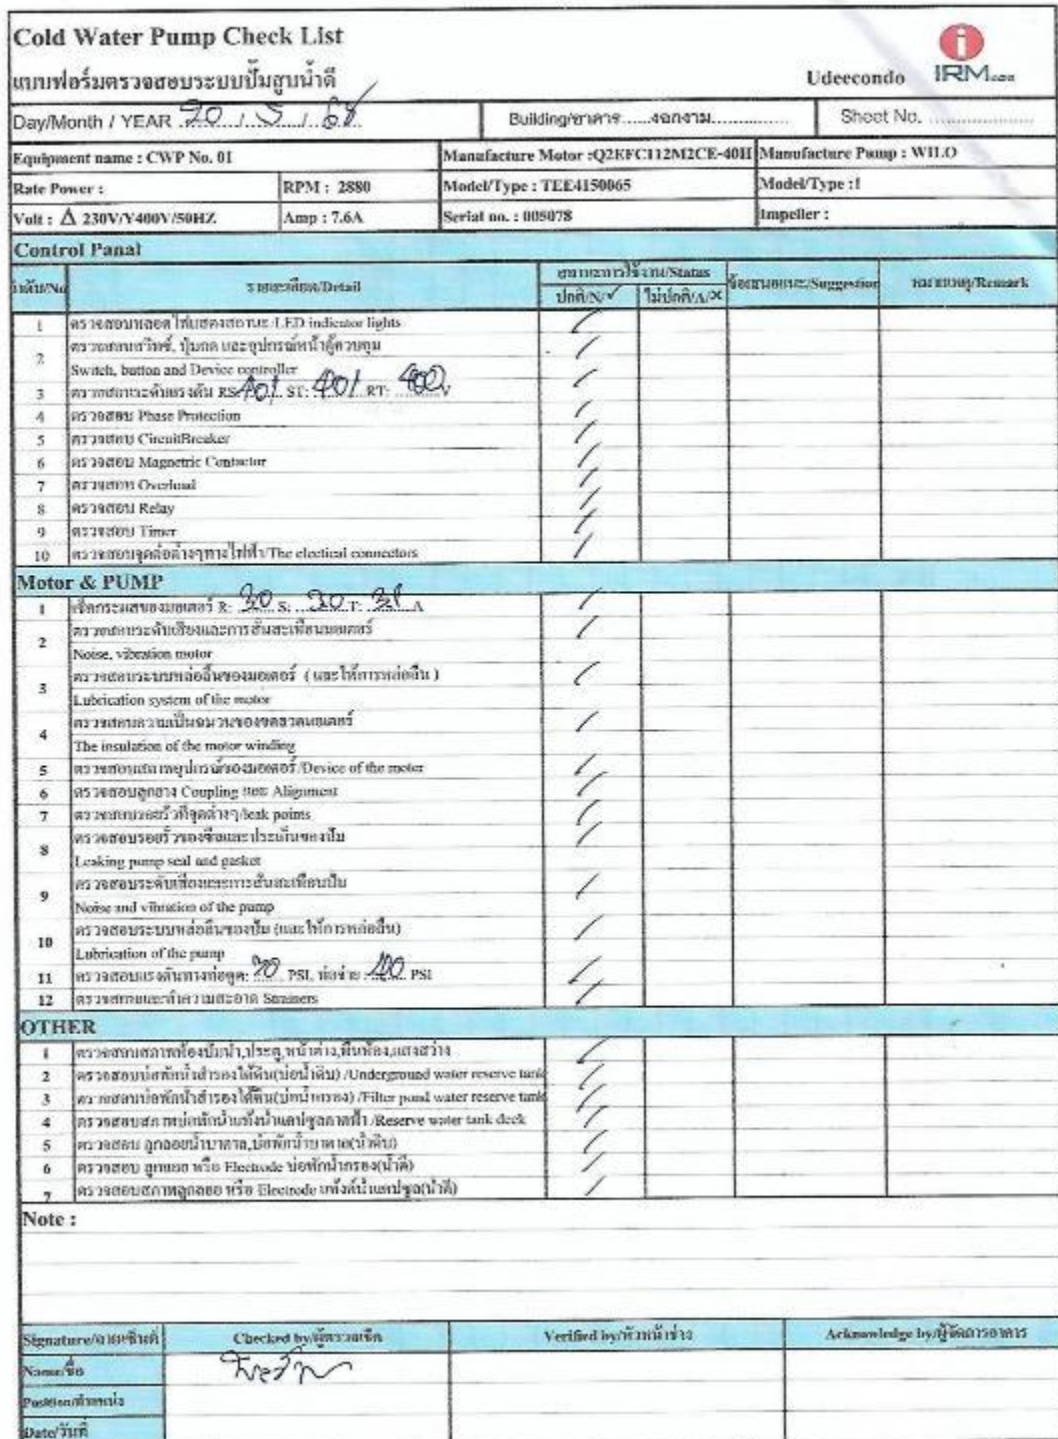 Cold Water Pump Check List
แบบฟอร์มตรวจสอบระบบปั๊มสูบน้ำดี
Udeecondo
IRM.com
Day/Month / YEAR 20 / 5 / 68
Building/อาคาร......งอกงาม...............
Sheet No. ......................
Equipment name : CWP No. 01
Manufacture Motor :Q2KFC112M2CE-40H
Manufacture Pump : WILO
Rate Power :
RPM : 2880
Model/Type : TEE4150065
Model/Type :1
Volt : Δ 230V/Y400V/50HZ
Amp : 7.6A
Serial no. : 005078
Impeller :
Control Panal
ลำดับ/No
รายละเอียด/Detail
สถานะการใช้งาน/Status
ปกติ/N/✓
ไม่ปกติ/A/✕
ข้อเสนอแนะ/Suggestion
หมายเหตุ/Remark
1 ตรวจสอบหลอดไฟแสดงสถานะ/LED indicator lights ✓
2 ตรวจสอบสวิทซ์, ปุ่มกด และอุปกรณ์หน้าตู้ควบคุม ✓
Switch, button and Device controller
3 ตรวจสอบระดับแรงดัน RS: 401 ST: 401 RT: 400 V ✓
4 ตรวจสอบ Phase Protection ✓
5 ตรวจสอบ CircuitBreaker ✓
6 ตรวจสอบ Magnetric Contactor ✓
7 ตรวจสอบ Overload ✓
8 ตรวจสอบ Relay ✓
9 ตรวจสอบ Timer ✓
10 ตรวจสอบจุดต่อต่างๆทางไฟฟ้า/The electical connectors ✓
Motor & PUMP
1 เช็คกระแสของมอเตอร์ R: S: T: A ✓
2 ตรวจสอบระดับเสียงและการสั่นสะเทือนมอเตอร์ ✓
Noise, vibration motor
3 ตรวจสอบระบบหล่อลื่นของมอเตอร์ ( และให้การหล่อลื่น ) ✓
Lubrication system of the motor
4 ตรวจสอบความเป็นฉนวนของขดลวดมอเตอร์ ✓
The insulation of the motor winding
5 ตรวจสอบสภาพอุปกรณ์ของมอเตอร์/Device of the motor ✓
6 ตรวจสอบลูกยาง Coupling และ Alignment ✓
7 ตรวจสอบรอยรั่วที่จุดต่างๆ/leak points ✓
8 ตรวจสอบรอยรั่วของซีลและประเก็นของปั๊ม ✓
Leaking pump seal and gasket
9 ตรวจสอบระดับเสียงและการสั่นสะเทือนปั๊ม ✓
Noise and vibration of the pump
10 ตรวจสอบระบบหล่อลื่นของปั๊ม (และให้การหล่อลื่น) ✓
Lubrication of the pump
11 ตรวจสอบแรงดันทางท่อดูด: PSI, ท่อจ่าย: PSI ✓
12 ตรวจสภาพและทำความสะอาด Strainers ✓
OTHER
1 ตรวจสอบสภาพห้องปั๊มน้ำ,ประตู,หน้าต่าง,พื้นห้อง,แสงสว่าง ✓
2 ตรวจสอบบ่อพักน้ำสำรองใต้ดิน(บ่อน้ำดิบ) /Underground water reserve tank ✓
3 ตรวจสอบบ่อพักน้ำสำรองใต้ดิน(บ่อน้ำกรอง) /Filter pond water reserve tank ✓
4 ตรวจสอบสภาพบ่อพักน้ำแท้งน้ำแคปซูลดาดฟ้า /Reserve water tank deck ✓
5 ตรวจสอบ ลูกลอยน้ำบาดาล,บ่อพักน้ำบาดาล(น้ำดิบ) ✓
6 ตรวจสอบ ลูกลอย หรือ Electrode บ่อพักน้ำกรอง(น้ำดี) ✓
7 ตรวจสอบสภาพลูกลอย หรือ Electrode แท้งค์น้ำแคปซูล(น้ำดี) ✓
Note :
Signature/ลายเซ็นต์
Checked by/ผู้ตรวจเช็ค
Verified by/หัวหน้าช่าง
Acknowledge by/ผู้จัดการอาคาร
Name/ชื่อ
Position/ตำแหน่ง
Date/วันที่